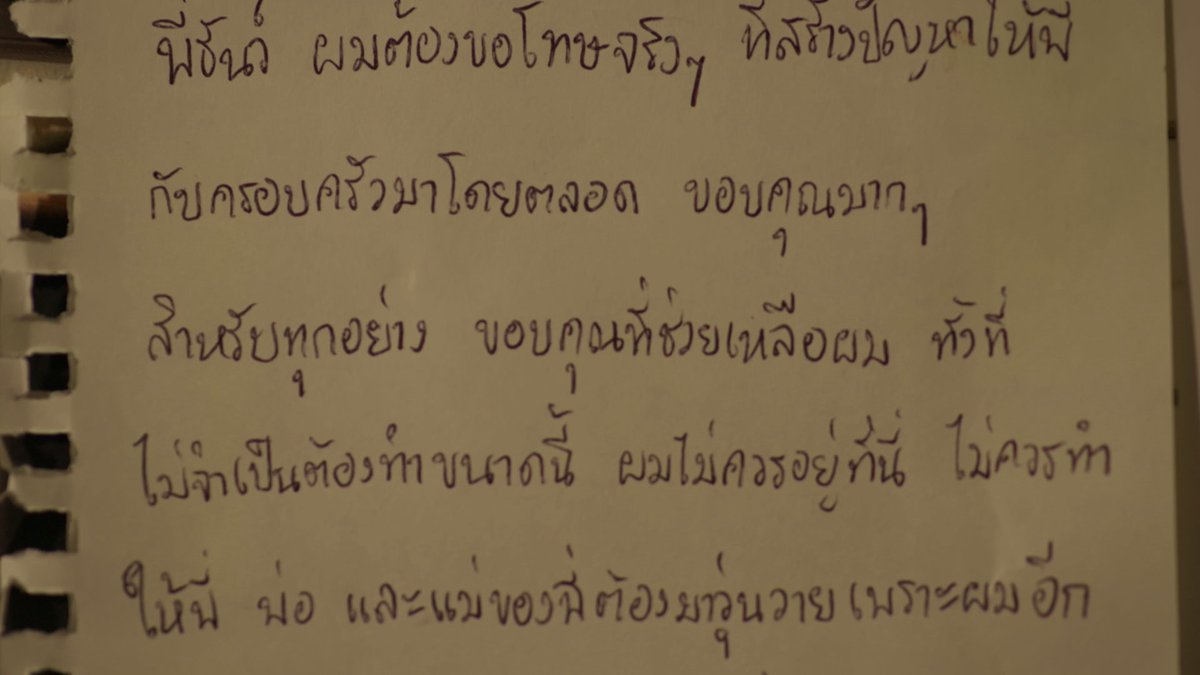 พี่ธันว์ ผมต้องขอโทษจริงๆ ที่สร้างปัญหาให้พี่
กับครอบครัวมาโดยตลอด ขอบคุณมากๆ
สำหรับทุกอย่าง ขอบคุณที่ช่วยเหลือผม ทั้งที่
ไม่จำเป็นต้องทำขนาดนี้ ผมไม่ควรอยู่ที่นี่ ไม่ควรทำ
ให้พี่ พ่อ และแม่ของพี่ต้องมาวุ่นวายเพราะผมอีก